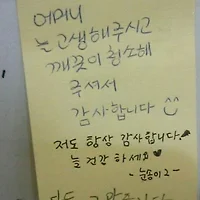 어머니
늘 고생해주시고
깨끗이 청소해
주셔서
감사합니다
저도 항상 감사합니다.
늘 건강하세요
- 눈송이2 -